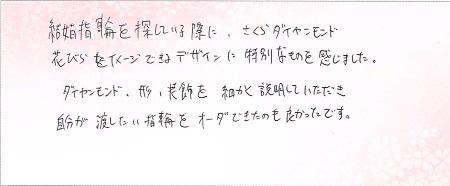 結婚指輪を探している際に、さくらダイヤンモンド
花びらをイメージできるデザインに特別なものを感じました。
ダイヤンモンド、形、装飾を細かく説明していただき
自分が渡したい指輪をオーダできたのも良かったです。